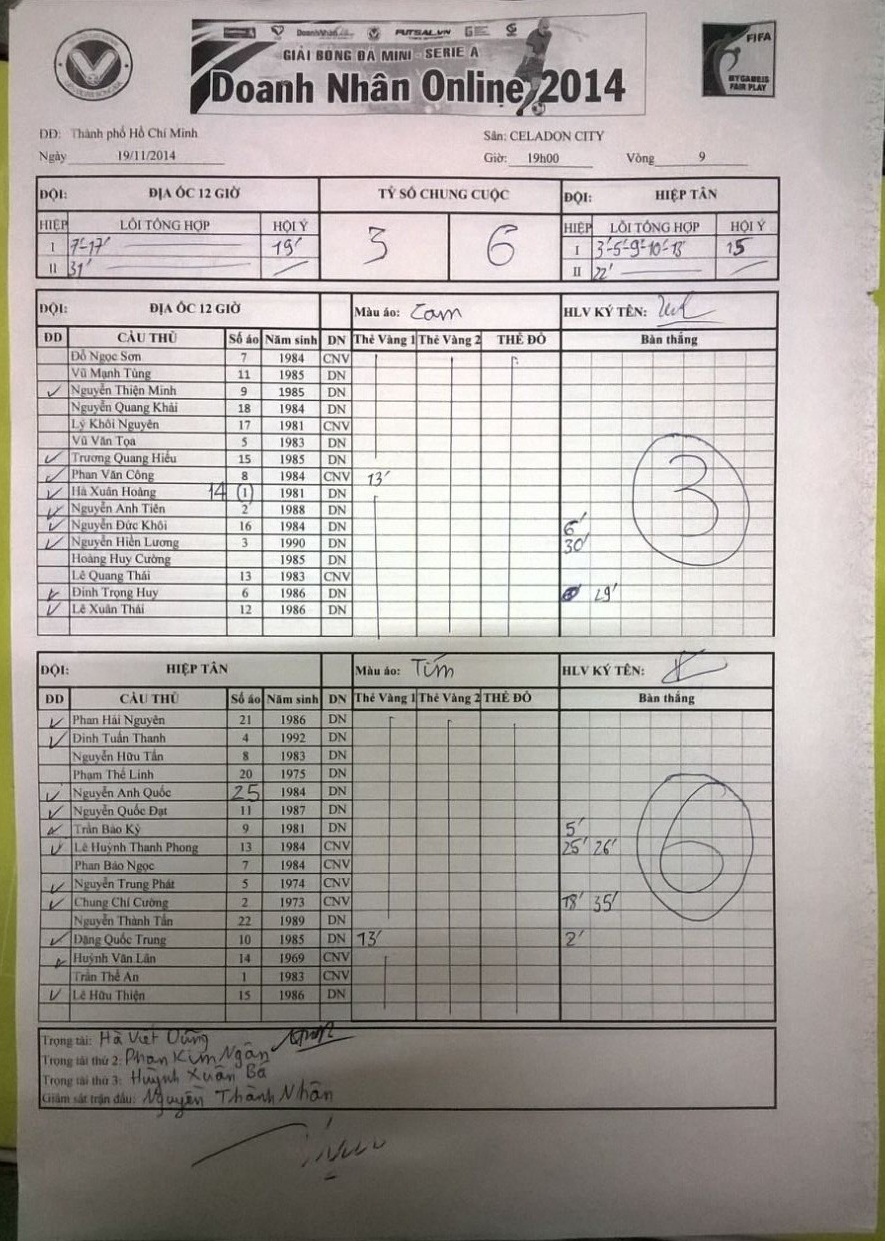 DoanhNhân FUTSAL.VN
GIẢI BÓNG ĐÁ MINI - SERIE A
Doanh Nhân Online 2014
FIFA
MY GAME IS
FAIR PLAY
DD: Thành phố Hồ Chí Minh Sân: CELADON CITY
Ngày 19/11/2014 Giờ: 19h00 Vòng 9
ĐỘI: ĐỊA ỐC 12 GIỜ TỶ SỐ CHUNG CUỘC ĐỘI: HIỆP TÂN
HIỆP LỖI TỔNG HỢP HỘI Ý 3 6 HIỆP LỖI TỔNG HỢP HỘI Ý
I 7'-17' 19' I 3'-5'-9'-10'-13' 15
II 31' II 22'
ĐỘI: ĐỊA ỐC 12 GIỜ Màu áo: Cam HLV KÝ TÊN:
ĐD CẦU THỦ Số áo Năm sinh DN Thẻ Vàng 1 Thẻ Vàng 2 THẺ ĐỎ Bàn thắng
Đỗ Ngọc Sơn 7 1984 CNV
Vũ Mạnh Tùng 11 1985 DN
✓ Nguyễn Thiện Minh 9 1985 DN
Nguyễn Quang Khải 18 1984 DN
Lý Khôi Nguyên 17 1981 CNV
Vũ Văn Tọa 5 1983 DN
✓ Trương Quang Hiếu 15 1985 DN
✓ Phan Văn Công 8 1984 CNV 13'
✓ Hà Xuân Hoàng 14 (1) 1981 DN
✓ Nguyễn Anh Tiên 2 1988 DN
✓ Nguyễn Đức Khôi 16 1984 DN 6'
✓ Nguyễn Hiền Lương 3 1990 DN 30'
Hoàng Huy Cường 1985 DN
Lê Quang Thái 13 1983 CNV
✓ Đinh Trọng Huy 6 1986 DN 29'
✓ Lê Xuân Thái 12 1986 DN
3
ĐỘI: HIỆP TÂN Màu áo: Tím HLV KÝ TÊN:
ĐD CẦU THỦ Số áo Năm sinh DN Thẻ Vàng 1 Thẻ Vàng 2 THẺ ĐỎ Bàn thắng
✓ Phan Hải Nguyên 21 1986 DN
✓ Đinh Tuấn Thanh 4 1992 DN
Nguyễn Hữu Tấn 8 1983 DN
Phạm Thế Linh 20 1975 DN
✓ Nguyễn Anh Quốc 25 1984 DN
✓ Nguyễn Quốc Đạt 11 1987 DN
✓ Trần Bảo Kỳ 9 1981 DN 5'
✓ Lê Huỳnh Thanh Phong 13 1984 CNV 25' 26'
Phan Bảo Ngọc 7 1984 CNV
✓ Nguyễn Trung Phát 5 1974 CNV
✓ Chung Chí Cường 2 1973 CNV 18' 35'
Nguyễn Thành Tấn 22 1989 DN
✓ Đặng Quốc Trung 10 1985 DN 13' 2'
✓ Huỳnh Văn Lân 14 1969 CNV
Trần Thế An 1 1983 CNV
✓ Lê Hữu Thiện 15 1986 DN
6
Trọng tài: Hà Viết Dũng
Trọng tài thứ 2: Phan Kim Ngân
Trọng tài thứ 3: Huỳnh Xuân Bá
Giám sát trận đấu: Nguyễn Thành Nhân